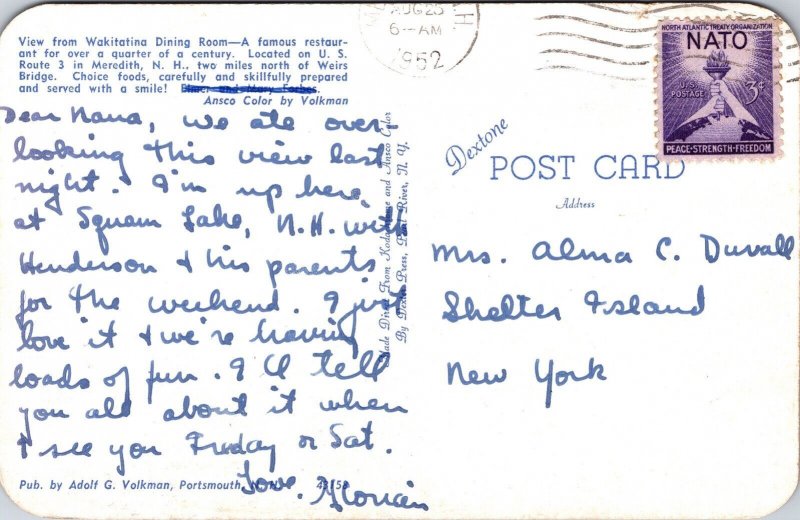 View from Wakitatina Dining Room—A famous restaur-
ant for over a quarter of a century. Located on U. S.
Route 3 in Meredith, N. H., two miles north of Weirs
Bridge. Choice foods, carefully and skillfully prepared
and served with a smile! Elmer and Mary Forbes.
Ansco Color by Volkman
Dear Nana, we ate over-
looking this view last
night. I'm up here
at Squam Lake, N.H. with
Henderson & his parents
for the weekend. I just
love it & we're having
loads of fun. I'll tell
you all about it when
I see you Friday or Sat.
Love,
Pub. by Adolf G. Volkman, Portsmouth, N. H. 43158
Made Direct From Kodachrome and Ansco Color
By Dexter Press, Pearl River, N. Y.
Dextone
POST CARD
Address
Mrs. Alma C. Duvall
Shelter Island
New York
AUG 25
6—AM
1952
NORTH ATLANTIC TREATY ORGANIZATION
NATO
U.S. POSTAGE
3¢
PEACE-STRENGTH-FREEDOM